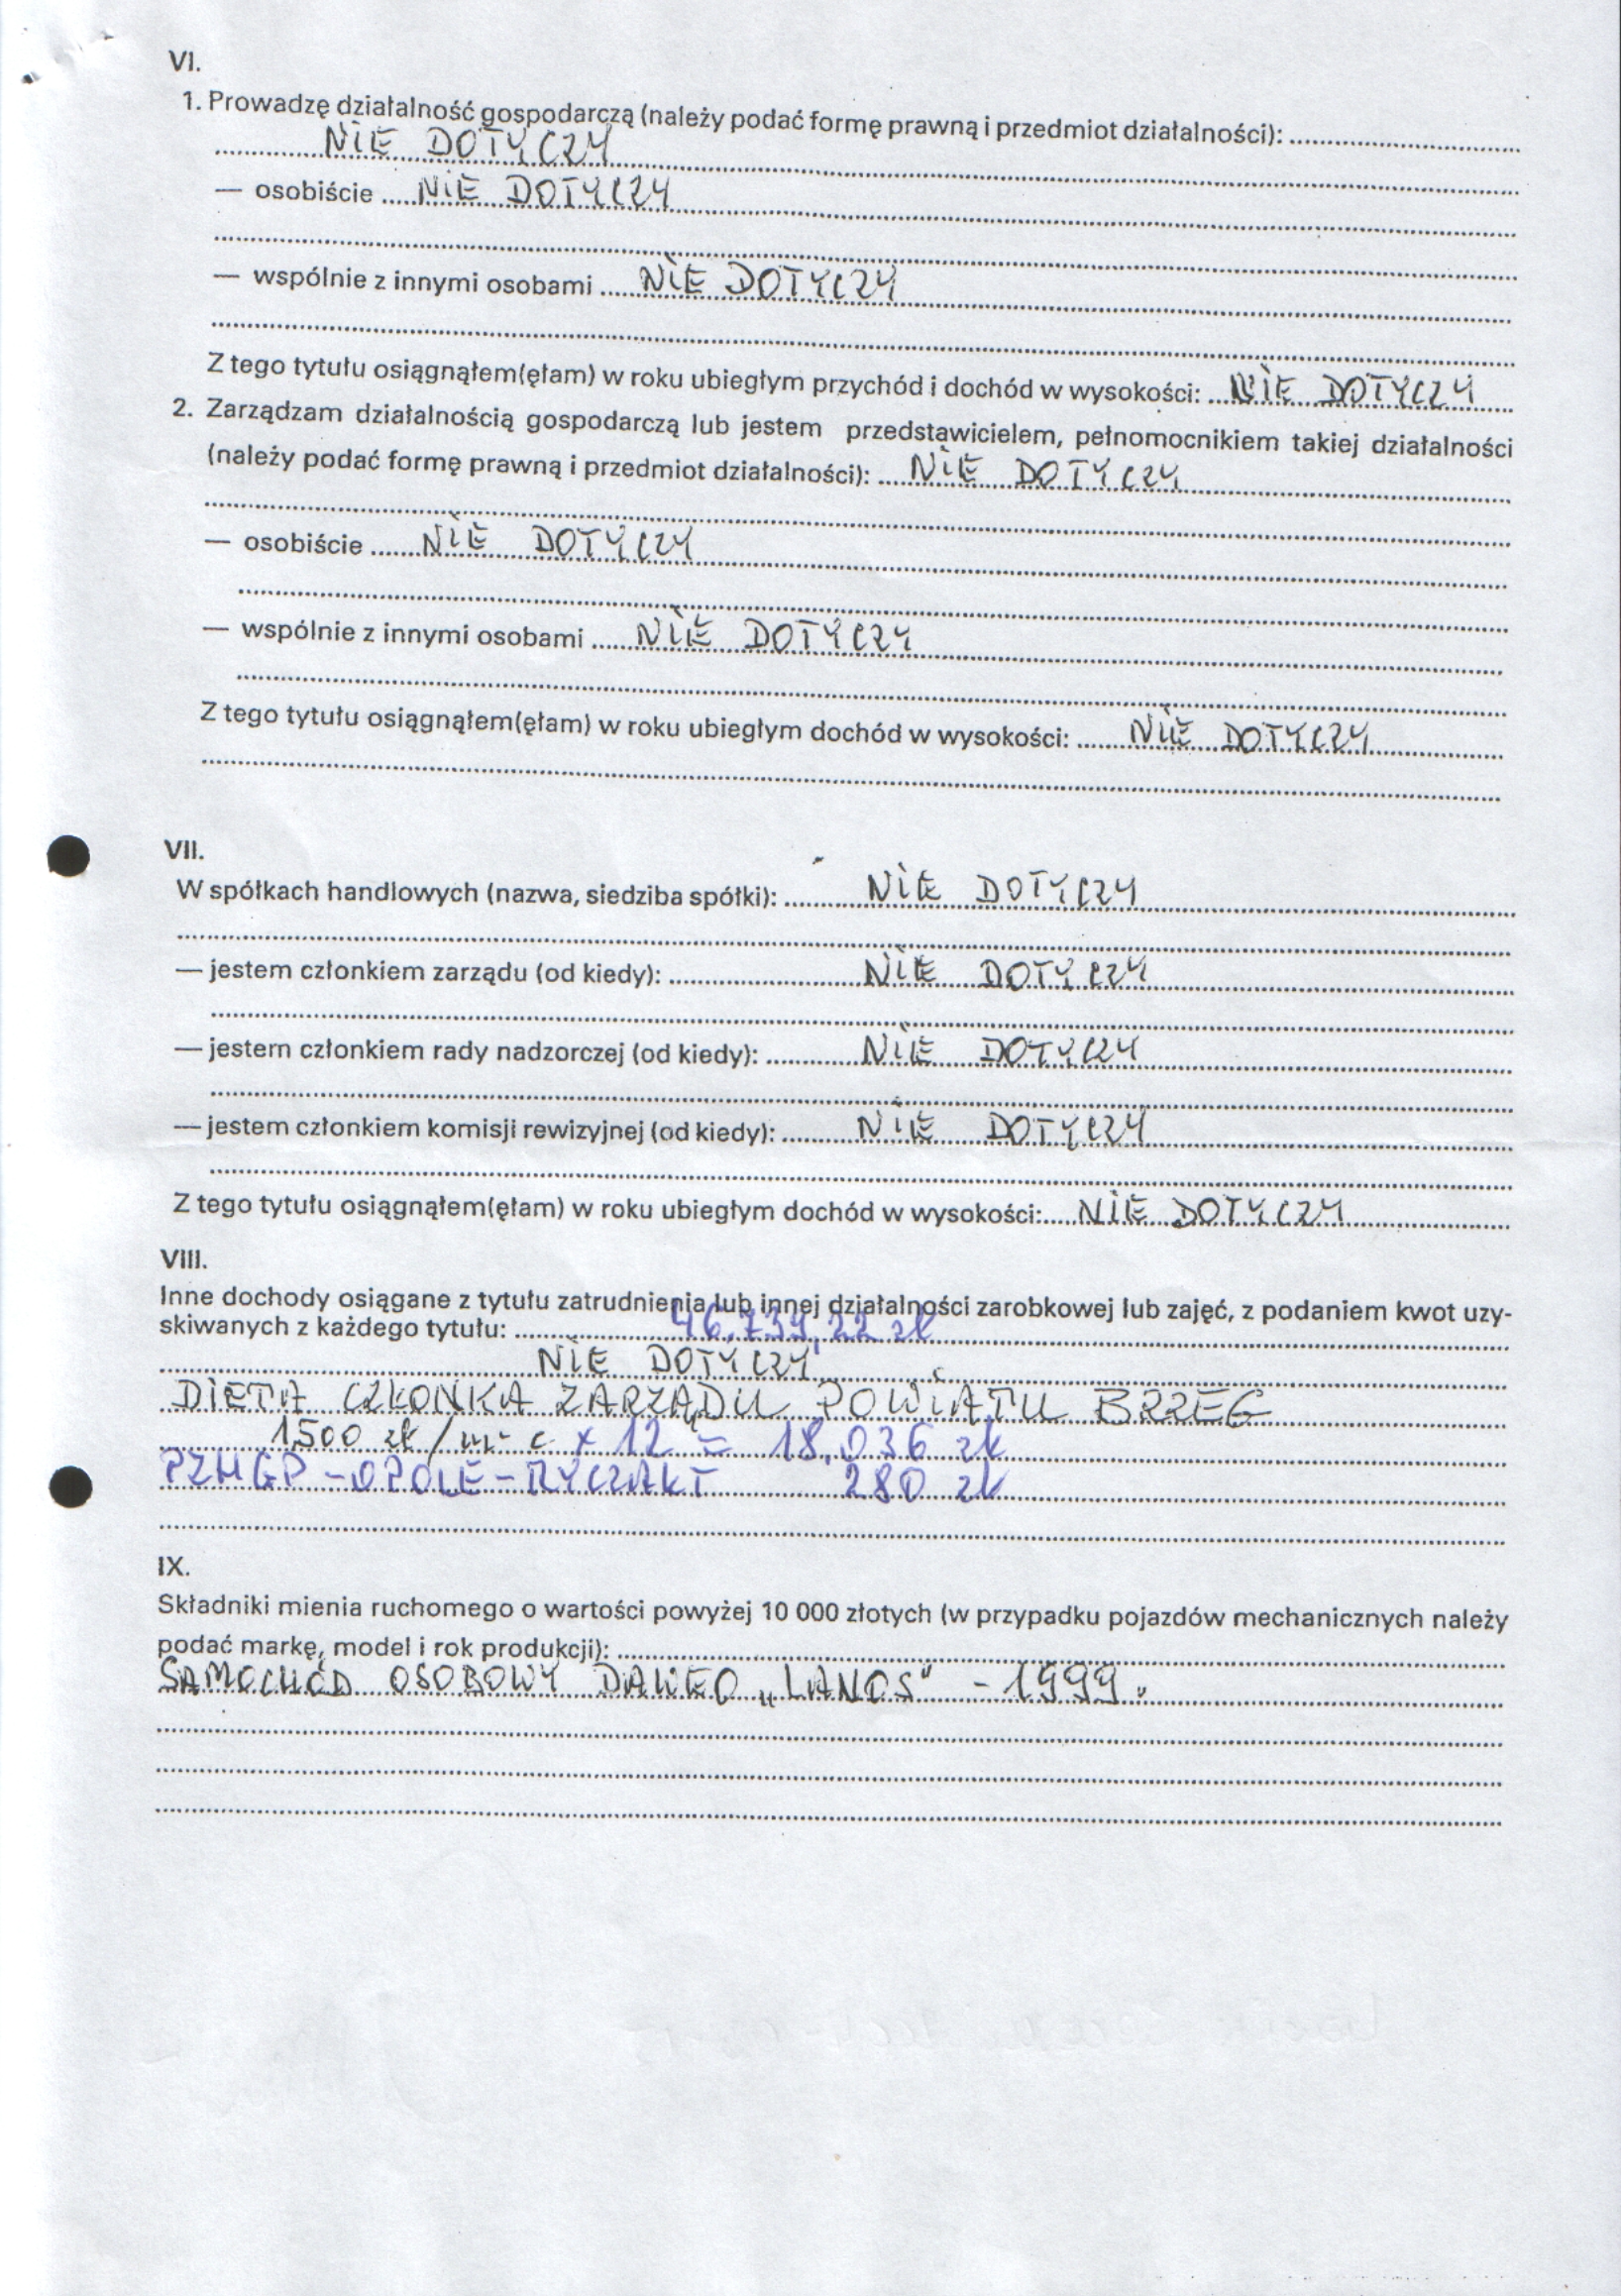 VI.
1. Prowadzę działalność gospodarczą (należy podać formę prawną i przedmiot działalności):
NIE DOTYCZY
— osobiście NIE DOTYCZY
— wspólnie z innymi osobami NIE DOTYCZY
Z tego tytułu osiągnąłem(ęłam) w roku ubiegłym przychód i dochód w wysokości: NIE DOTYCZY
2. Zarządzam działalnością gospodarczą lub jestem przedstawicielem, pełnomocnikiem takiej działalności
(należy podać formę prawną i przedmiot działalności): NIE DOTYCZY
— osobiście NIE DOTYCZY
— wspólnie z innymi osobami NIE DOTYCZY
Z tego tytułu osiągnąłem(ęłam) w roku ubiegłym dochód w wysokości: NIE DOTYCZY
VII.
W spółkach handlowych (nazwa, siedziba spółki): NIE DOTYCZY
— jestem członkiem zarządu (od kiedy): NIE DOTYCZY
— jestem członkiem rady nadzorczej (od kiedy): NIE DOTYCZY
— jestem członkiem komisji rewizyjnej (od kiedy): NIE DOTYCZY
Z tego tytułu osiągnąłem(ęłam) w roku ubiegłym dochód w wysokości: NIE DOTYCZY
VIII.
Inne dochody osiągane z tytułu zatrudnienia lub innej działalności zarobkowej lub zajęć, z podaniem kwot uzy-
skiwanych z każdego tytułu: 46.739,22 zł
NIE DOTYCZY
DIETA CZŁONKA ZARZĄDU POWIATU BRZEG
1500 zł/m-c x 12 = 18.036 zł
PZHGP - OPOLE - RYCZAŁT 280 zł
IX.
Składniki mienia ruchomego o wartości powyżej 10 000 złotych (w przypadku pojazdów mechanicznych należy
podać markę, model i rok produkcji):
SAMOCHÓD OSOBOWY DAWEO „LANOS" - 1999.